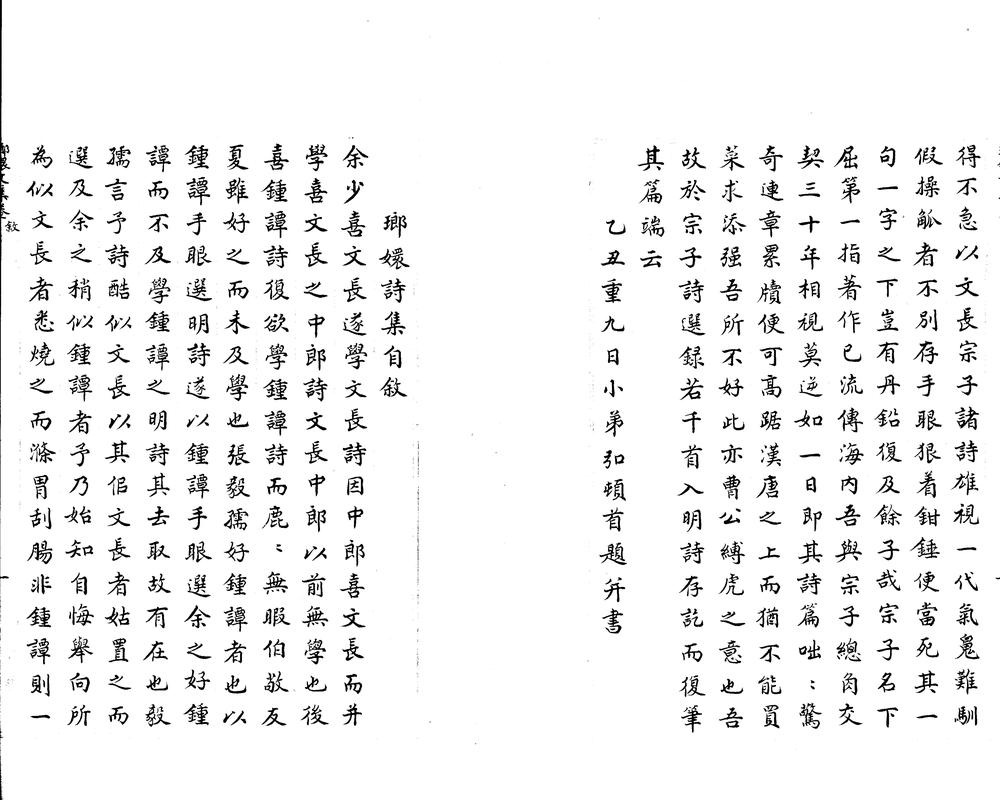 得不急以文長宗子諸詩雄視一代氣鬼難馴
假操觚者不別存手眼狠着鉗錘便當死其一
句一字之下豈有丹鉛復及餘子哉宗子名下
屈第一指著作已流傳海内吾與宗子總肉交
契三十年相視莫逆如一日即其詩篇咄〻驚
奇連章累牘便可高踞漢唐之上而猶不能買
菜求添强吾所不好此亦曹公縛虎之意也吾
故於宗子詩選録若千首入明詩存訖而復筆
其篇端云
乙丑重九日小弟弘頓首題并書
瑯嬛詩集自敘
余少喜文長遂學文長詩因中郎喜文長而并
學喜文長之中郎詩文長中郎以前無學也後
喜鍾譚詩復欲學鍾譚詩而鹿〻無暇伯敬友
夏雖好之而未及學也張毅孺好鍾譚者也以
鍾譚手眼選明詩遂以鍾譚手眼選余之好鍾
譚而不及學鍾譚之明詩其去取故有在也毅
孺言予詩酷似文長以其佀文長者姑置之而
選及余之稍似鍾譚者予乃始知自悔舉向所
為似文長者悉燒之而滌胃刮腸非鍾譚則一
敘